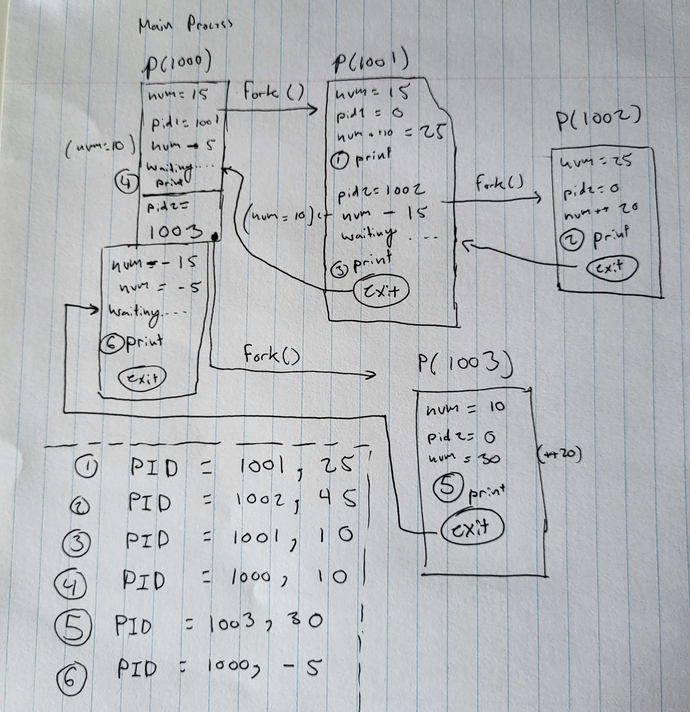 Main Process
P(1000)
num = 15
pid1 = 1001
num → 5
(num=10)
waiting....
④ print
pid2 =
1003
num = - 15
num = -5
waiting....
⑥ print
exit
fork()
P(1001)
num = 15
pid1 = 0
num + 10 = 25
① print
pid2 = 1002
num - 15
(num = 10)
waiting ....
③ print
exit
fork()
P(1002)
num = 25
pid2 = 0
num ++ 20
② print
exit
fork()
P(1003)
num = 10
pid2 = 0
num = 30
(++20)
⑤ print
exit
① PID = 1001, 25
② PID = 1002, 45
③ PID = 1001, 10
④ PID = 1000, 10
⑤ PID = 1003, 30
⑥ PID = 1000, -5